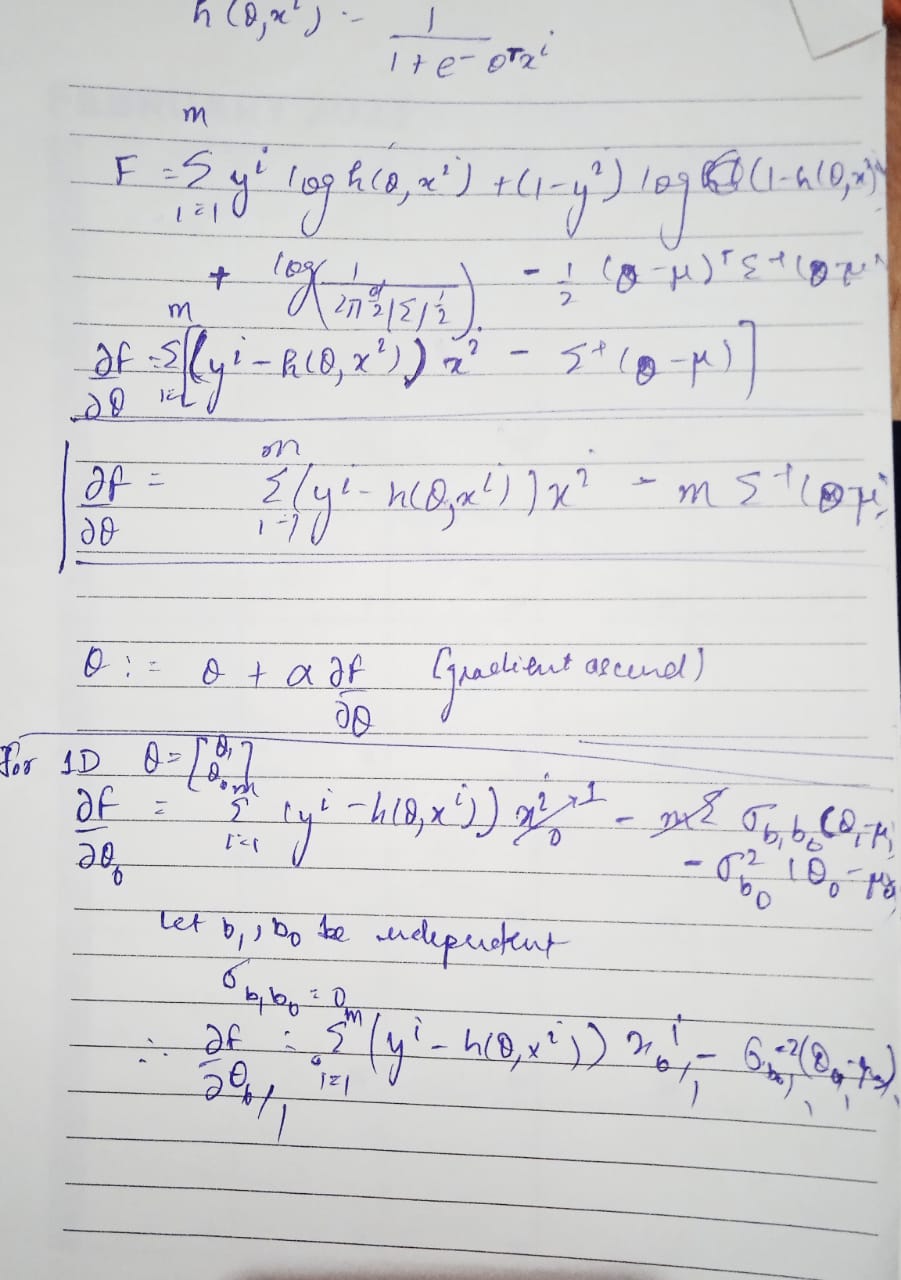 h(θ,xⁱ) = 1/(1+e^-θᵀxⁱ)
F = Σ_{i=1}^{m} yⁱ log h(θ,xⁱ) + (1-yⁱ) log (1-h(θ,xⁱ
+ log(1/(2π^{d/2}|Σ|^{1/2})) - 1/2 (θ-μ)ᵀ Σ⁻¹(θ-μ
∂f/∂θ = Σ_{i=1}^{m}[(yⁱ - h(θ,xⁱ)) xⁱ - Σ⁻¹(θ-μ)]
∂f/∂θ = Σ_{i=1}^{m}(yⁱ - h(θ,xⁱ))xⁱ - m Σ⁻¹(θ-μ
θ := θ + α ∂f/∂θ (gradient ascend)
For 1D θ = [θ₁ θ₀]
∂f/∂θ₀ = Σ_{i=1}^{m} (yⁱ - h(θ,xⁱ)) 1 - σ_{b₁b₀}(θ₁-μ₁
- σ²_{b₀}(θ₀-μ₀
Let b₁, b₀ be independent
σ_{b₁b₀} = 0
∴ ∂f/∂θ₀/₁ = Σ_{i=1}^{m} (yⁱ - h(θ,xⁱ)) xⁱ₀,₁ - σ⁻²_{b₀,₁}(θ₀,₁-μ₀,₁)